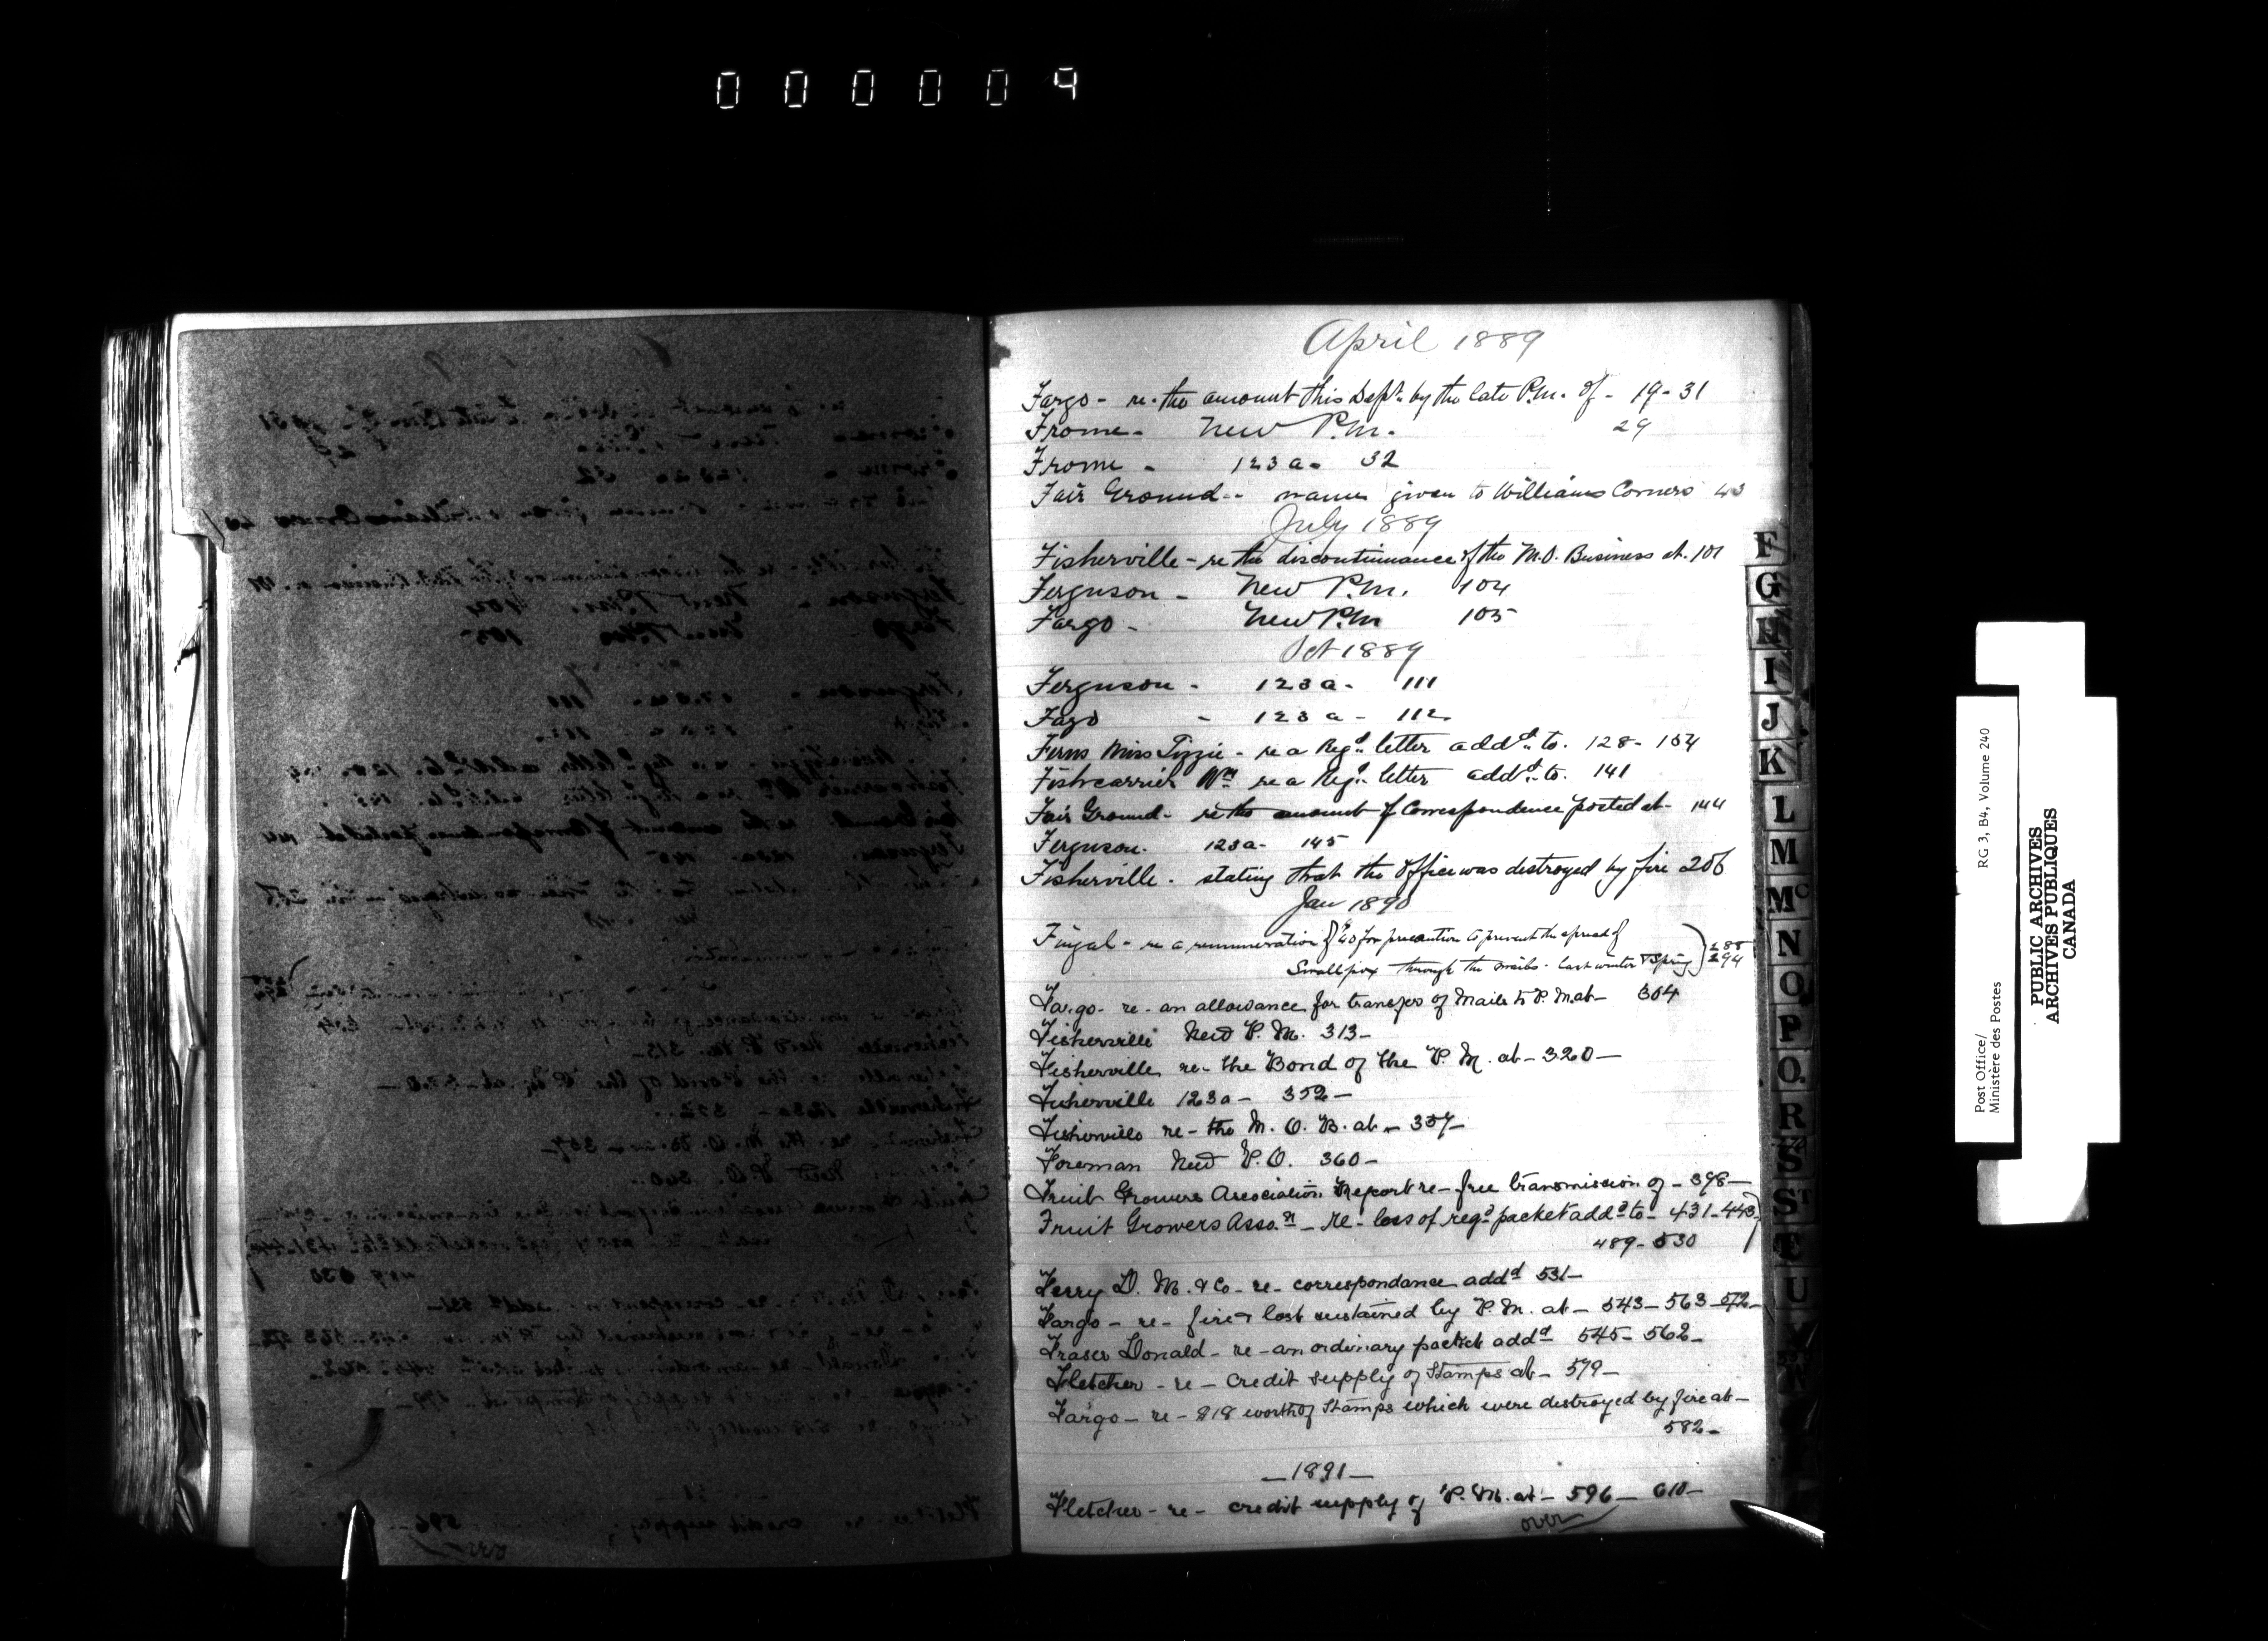 000009
April 1889
Fargo - re. the amount this Dept. by the late P.M. of - 19 - 31
Frome - New P.M. 29
Frome - 123a - 32
Fair Ground - name given to Williams Corners 43
July 1889
Fisherville - re the discontinuance of the M.O. Business at. 101
Ferguson - New P.M. 104
Fargo - New P.M 105
Oct 1889
Ferguson - 123a - 111
Fago - 123a - 112
Ferns Miss Lizzie - re a Regd. letter addd. to. 128 - 154
Fishcarrier Wm re a Regd. letter addd. to. 141
Fair Ground - re the amount of Correspondence posted at - 144
Ferguson. 123a - 145
Fisherville - stating that the Office was destroyed by fire 206
Jan 1890
Fingal - re a remuneration of $40 for precaution to prevent the spread of
Smallpox through the mails - last winter & Spring 288
294
Fargo - re - an allowance for transfer of Mails to P. M. at - 304
Fisherville New P. M. 313 -
Fisherville re - the Bond of the P. M. at - 320 -
Fisherville 123a - 352 -
Fisherville re - the M. O. B. at - 357 -
Foreman New P.O. 360 -
Fruit Growers Association Report re - free transmission of - 398 -
Fruit Growers Asson - re - loss of regd packet addd to - 431 - 443
489 - 530
Ferry D. M. & Co - re - correspondance addd 531 -
Fargo - re - fire & lost sustained by P. M. at - 543 - 563 - 572 -
Fraser Donald - re - an ordinary packet addd 545 - 562 -
Fletcher - re - credit supply of Stamps at - 579 -
Fargo - re - $18 worth of Stamps which were destroyed by fire at -
582 -
- 1891 -
Fletcher - re - credit supply of P. M. at - 596 - 610 -
over
F
G
H
I
J
K
L
M
Mc
N
O
P
Q
R
S
ST
T
U
Post Office/ RG 3, B4, Volume 240
Ministère des Postes
PUBLIC ARCHIVES
ARCHIVES PUBLIQUES
CANADA